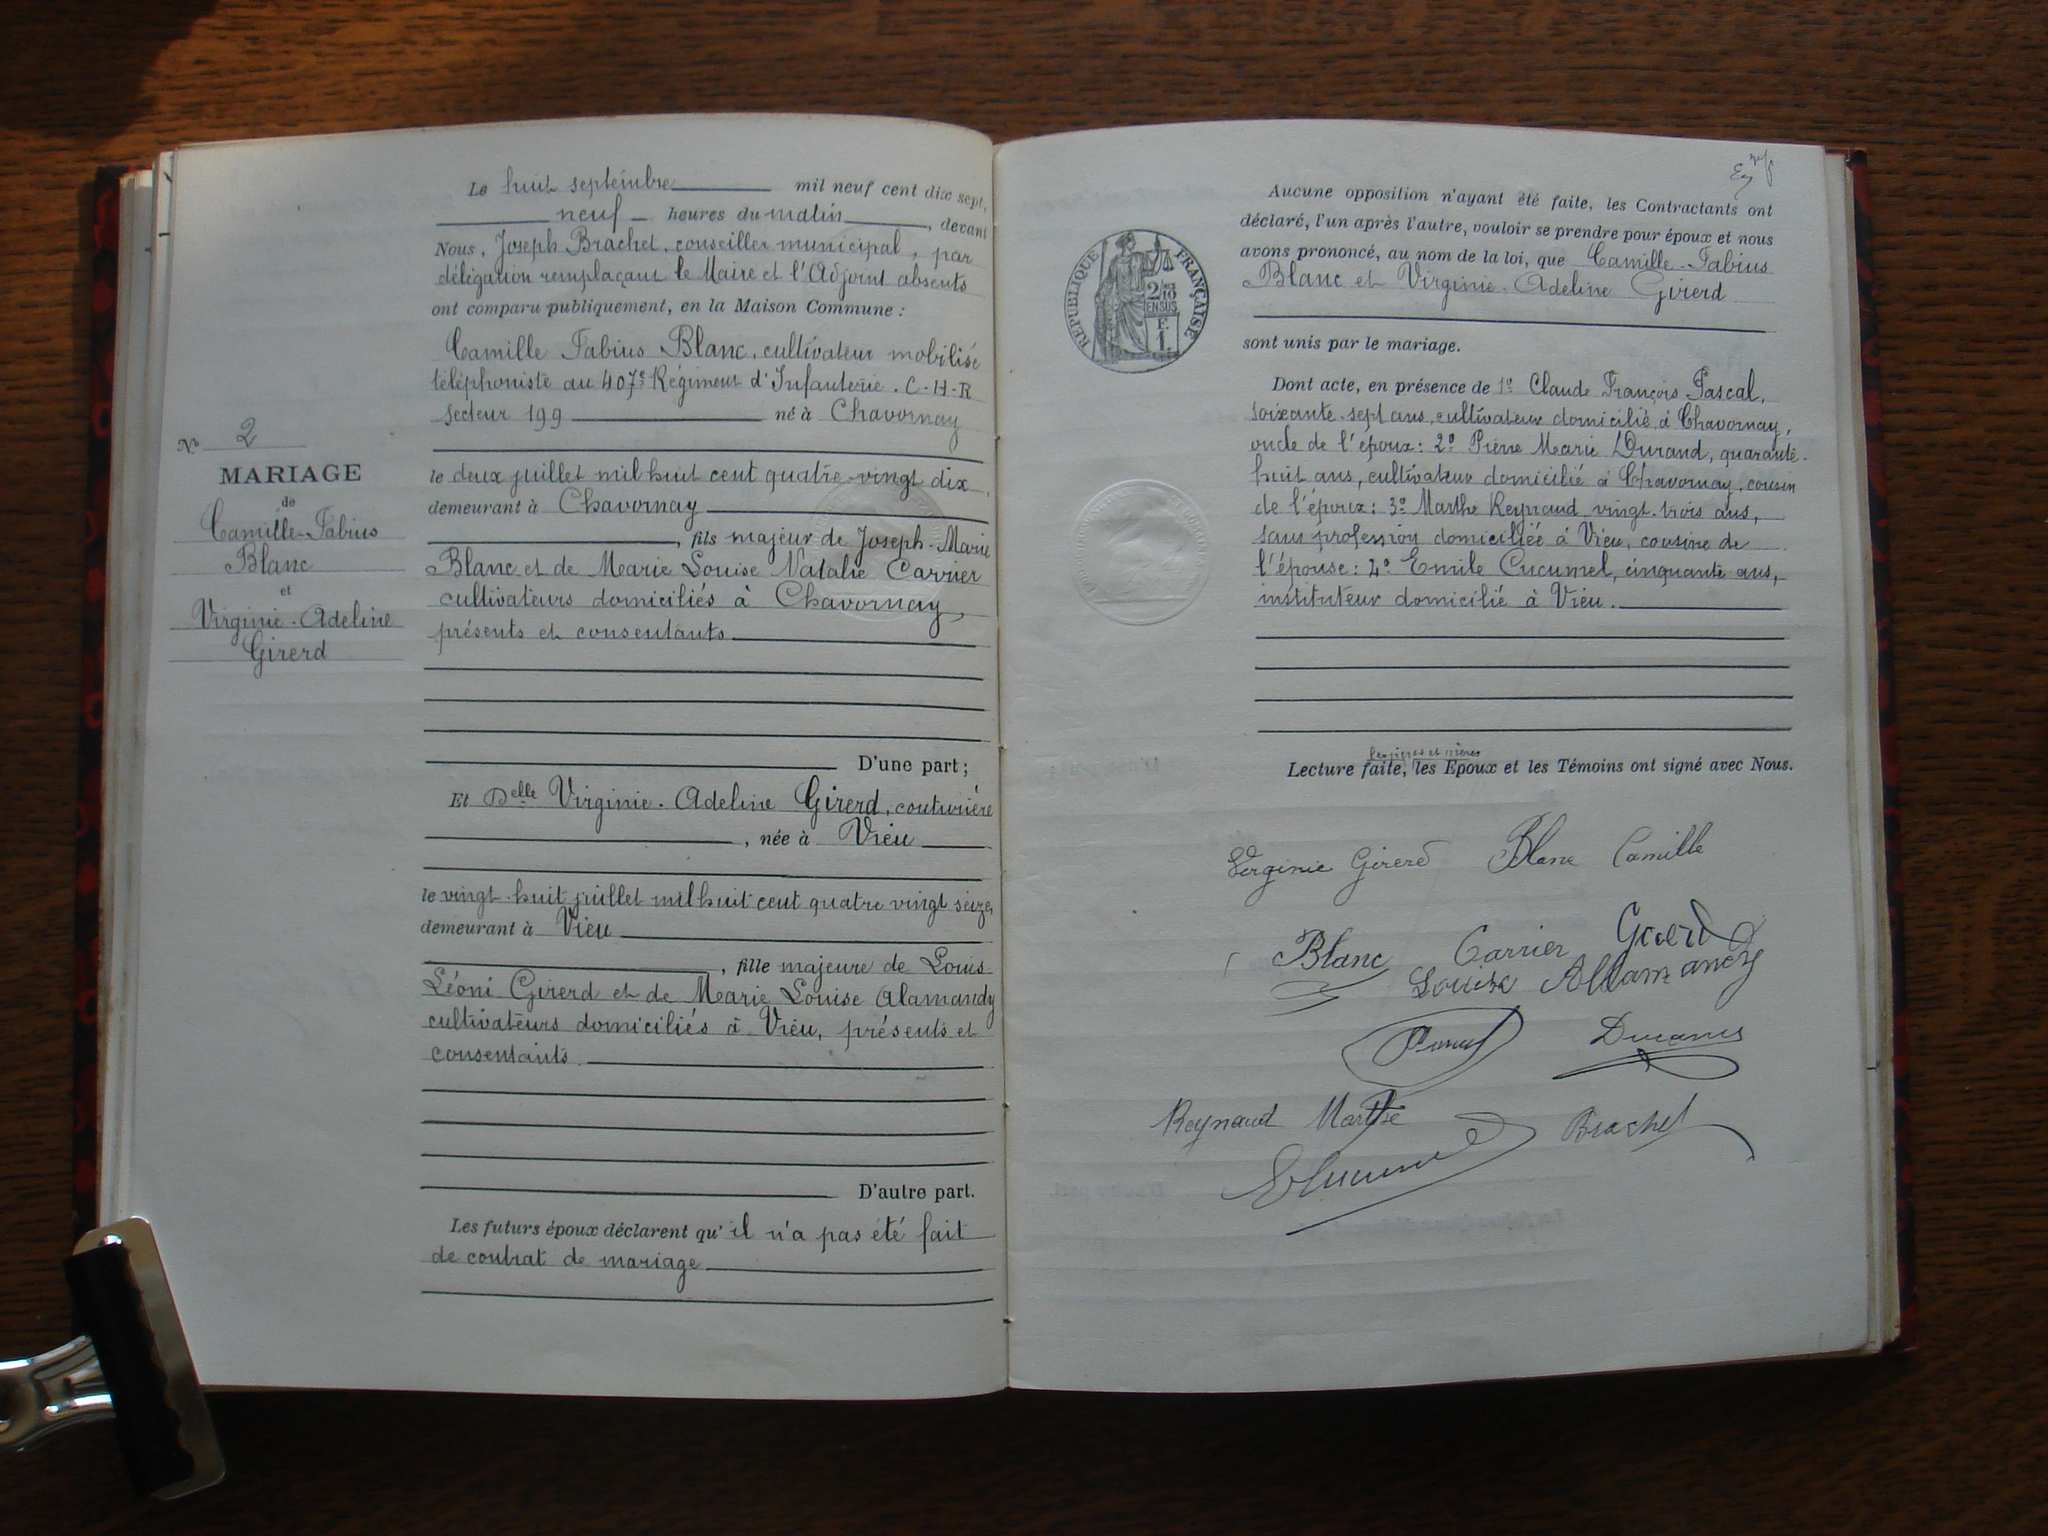 Le huit septembre mil neuf cent dix sept,
neuf heures du matin, devant
Nous, Joseph Brachet, conseiller municipal, par
délégation remplaçant le Maire et l'Adjoint absents
ont comparu publiquement, en la Maison Commune :
Camille Fabius Blanc, cultivateur mobilisé
téléphoniste au 407e Régiment d'Infanterie. C-H-R
secteur 199 né à Chavornay
le deux juillet mil huit cent quatre-vingt dix,
demeurant à Chavornay
, fils majeur de Joseph-Marie
Blanc et de Marie Louise Natalie Carrier
cultivateurs domiciliés à Chavornay,
présents et consentants
D'une part ;
Et Delle Virginie-Adeline Girerd, couturière
, née à Vieu
le vingt-huit juillet mil huit cent quatre vingt seize,
demeurant à Vieu
, fille majeure de Louis
Léoni Girerd et de Marie Louise Alamandy
cultivateurs domiciliés à Vieu, présents et
consentants
D'autre part.
Les futurs époux déclarent qu'il n'a pas été fait
de contrat de mariage
No 2
MARIAGE
de
Camille-Fabius
Blanc
et
Virginie-Adeline
Girerd
Aucune opposition n'ayant été faite, les Contractants ont
déclaré, l'un après l'autre, vouloir se prendre pour époux et nous
avons prononcé, au nom de la loi, que Camille-Fabius
Blanc et Virginie-Adeline Girerd
sont unis par le mariage.
Dont acte, en présence de 1o Claude François Pascal,
soixante-sept ans, cultivateur domicilié à Chavornay,
oncle de l'époux : 2o Pierre Marie Durand, quarante-
huit ans, cultivateur domicilié à Chavornay, cousin
de l'époux : 3o Marthe Reynaud vingt-trois ans,
sans profession domiciliée à Vieu, cousine de
l'épouse : 4o Emile Cucumel, cinquante ans,
instituteur domicilié à Vieu.
les pères et mères
Lecture faite, les Epoux et les Témoins ont signé avec Nous.
REPUBLIQUE FRANÇAISE
2/10
EN SUS
1 F.
Virginie Girerd Blanc Camille
Blanc Carrier Girerd
Louise Allamandy
Durand
Reynaud Marthe
Brachet